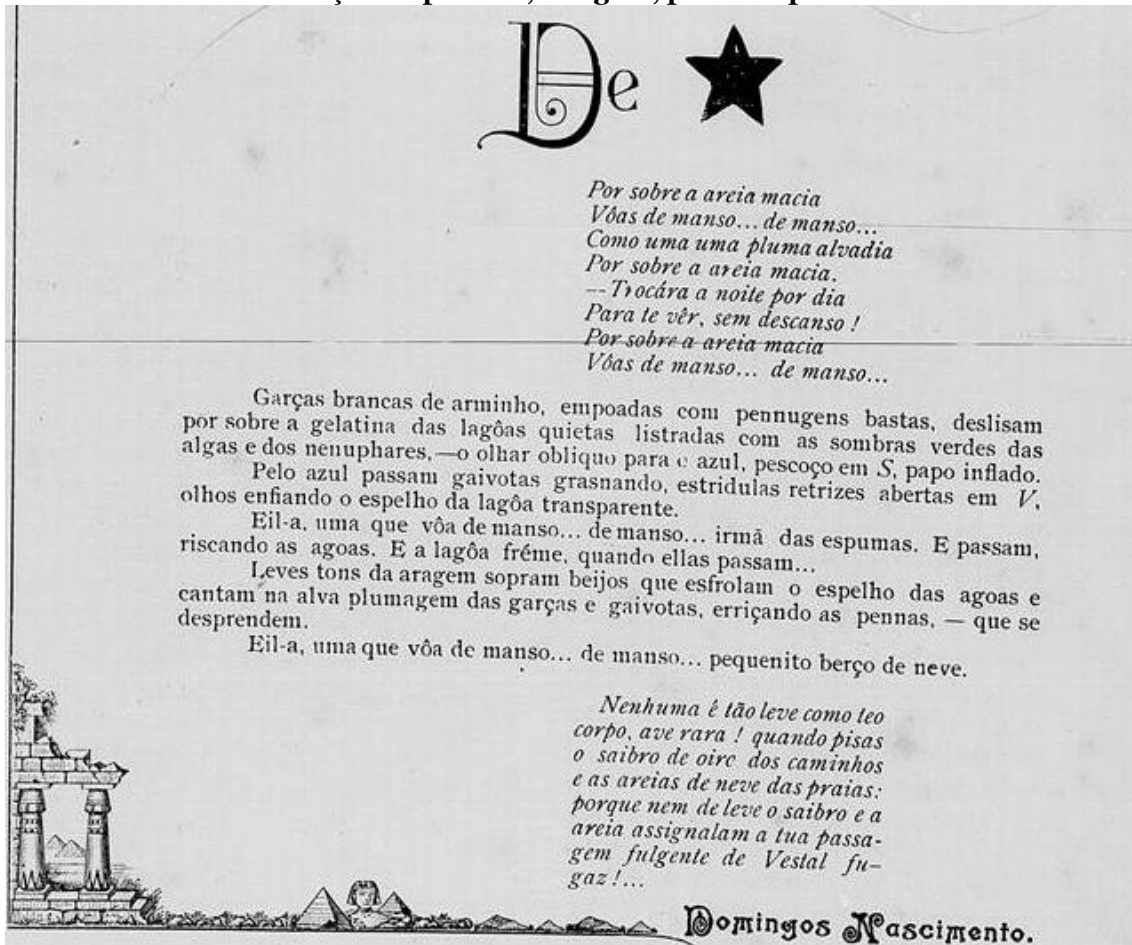 De ★
Por sobre a areia macia
Vôas de manso... de manso...
Como uma uma pluma alvadia
Por sobre a areia macia.
-- Trocára a noite por dia
Para te vêr, sem descanso !
Por sobre a areia macia
Vôas de manso... de manso...
Garças brancas de arminho, empoadas com pennugens bastas, deslisam
por sobre a gelatina das lagôas quietas listradas com as sombras verdes das
algas e dos nenuphares,—o olhar obliquo para o azul, pescoço em S, papo inflado.
Pelo azul passam gaivotas grasnando, estridulas retrizes abertas em V,
olhos enfiando o espelho da lagôa transparente.
Eil-a, uma que vôa de manso... de manso... irmã das espumas. E passam,
riscando as agoas. E a lagôa fréme, quando ellas passam...
Leves tons da aragem sopram beijos que esfrolam o espelho das agoas e
cantam na alva plumagem das garças e gaivotas, erriçando as pennas, — que se
desprendem.
Eil-a, uma que vôa de manso... de manso... pequenito berço de neve.
Nenhuma é tão leve como teo
corpo, ave rara ! quando pisas
o saibro de oiro dos caminhos
e as areias de neve das praias:
porque nem de leve o saibro e a
areia assignalam a tua passa-
gem fulgente de Vestal fu-
gaz !...
Domingos Nascimento.